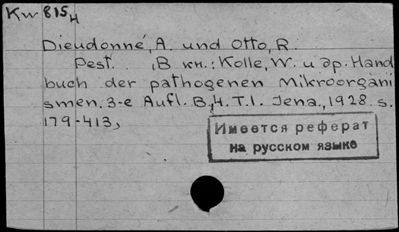 Kw 815н
Dieudonné, A. und Otto, R.
Pest. , В кн.: Kolle, W. и др. Hand
buch der pathogenen Mikroorgani
smen. 3-е Aufl. B., 4. T. I. Jena., 1928. s.
179-413,
Имеется реферат
на русском языке